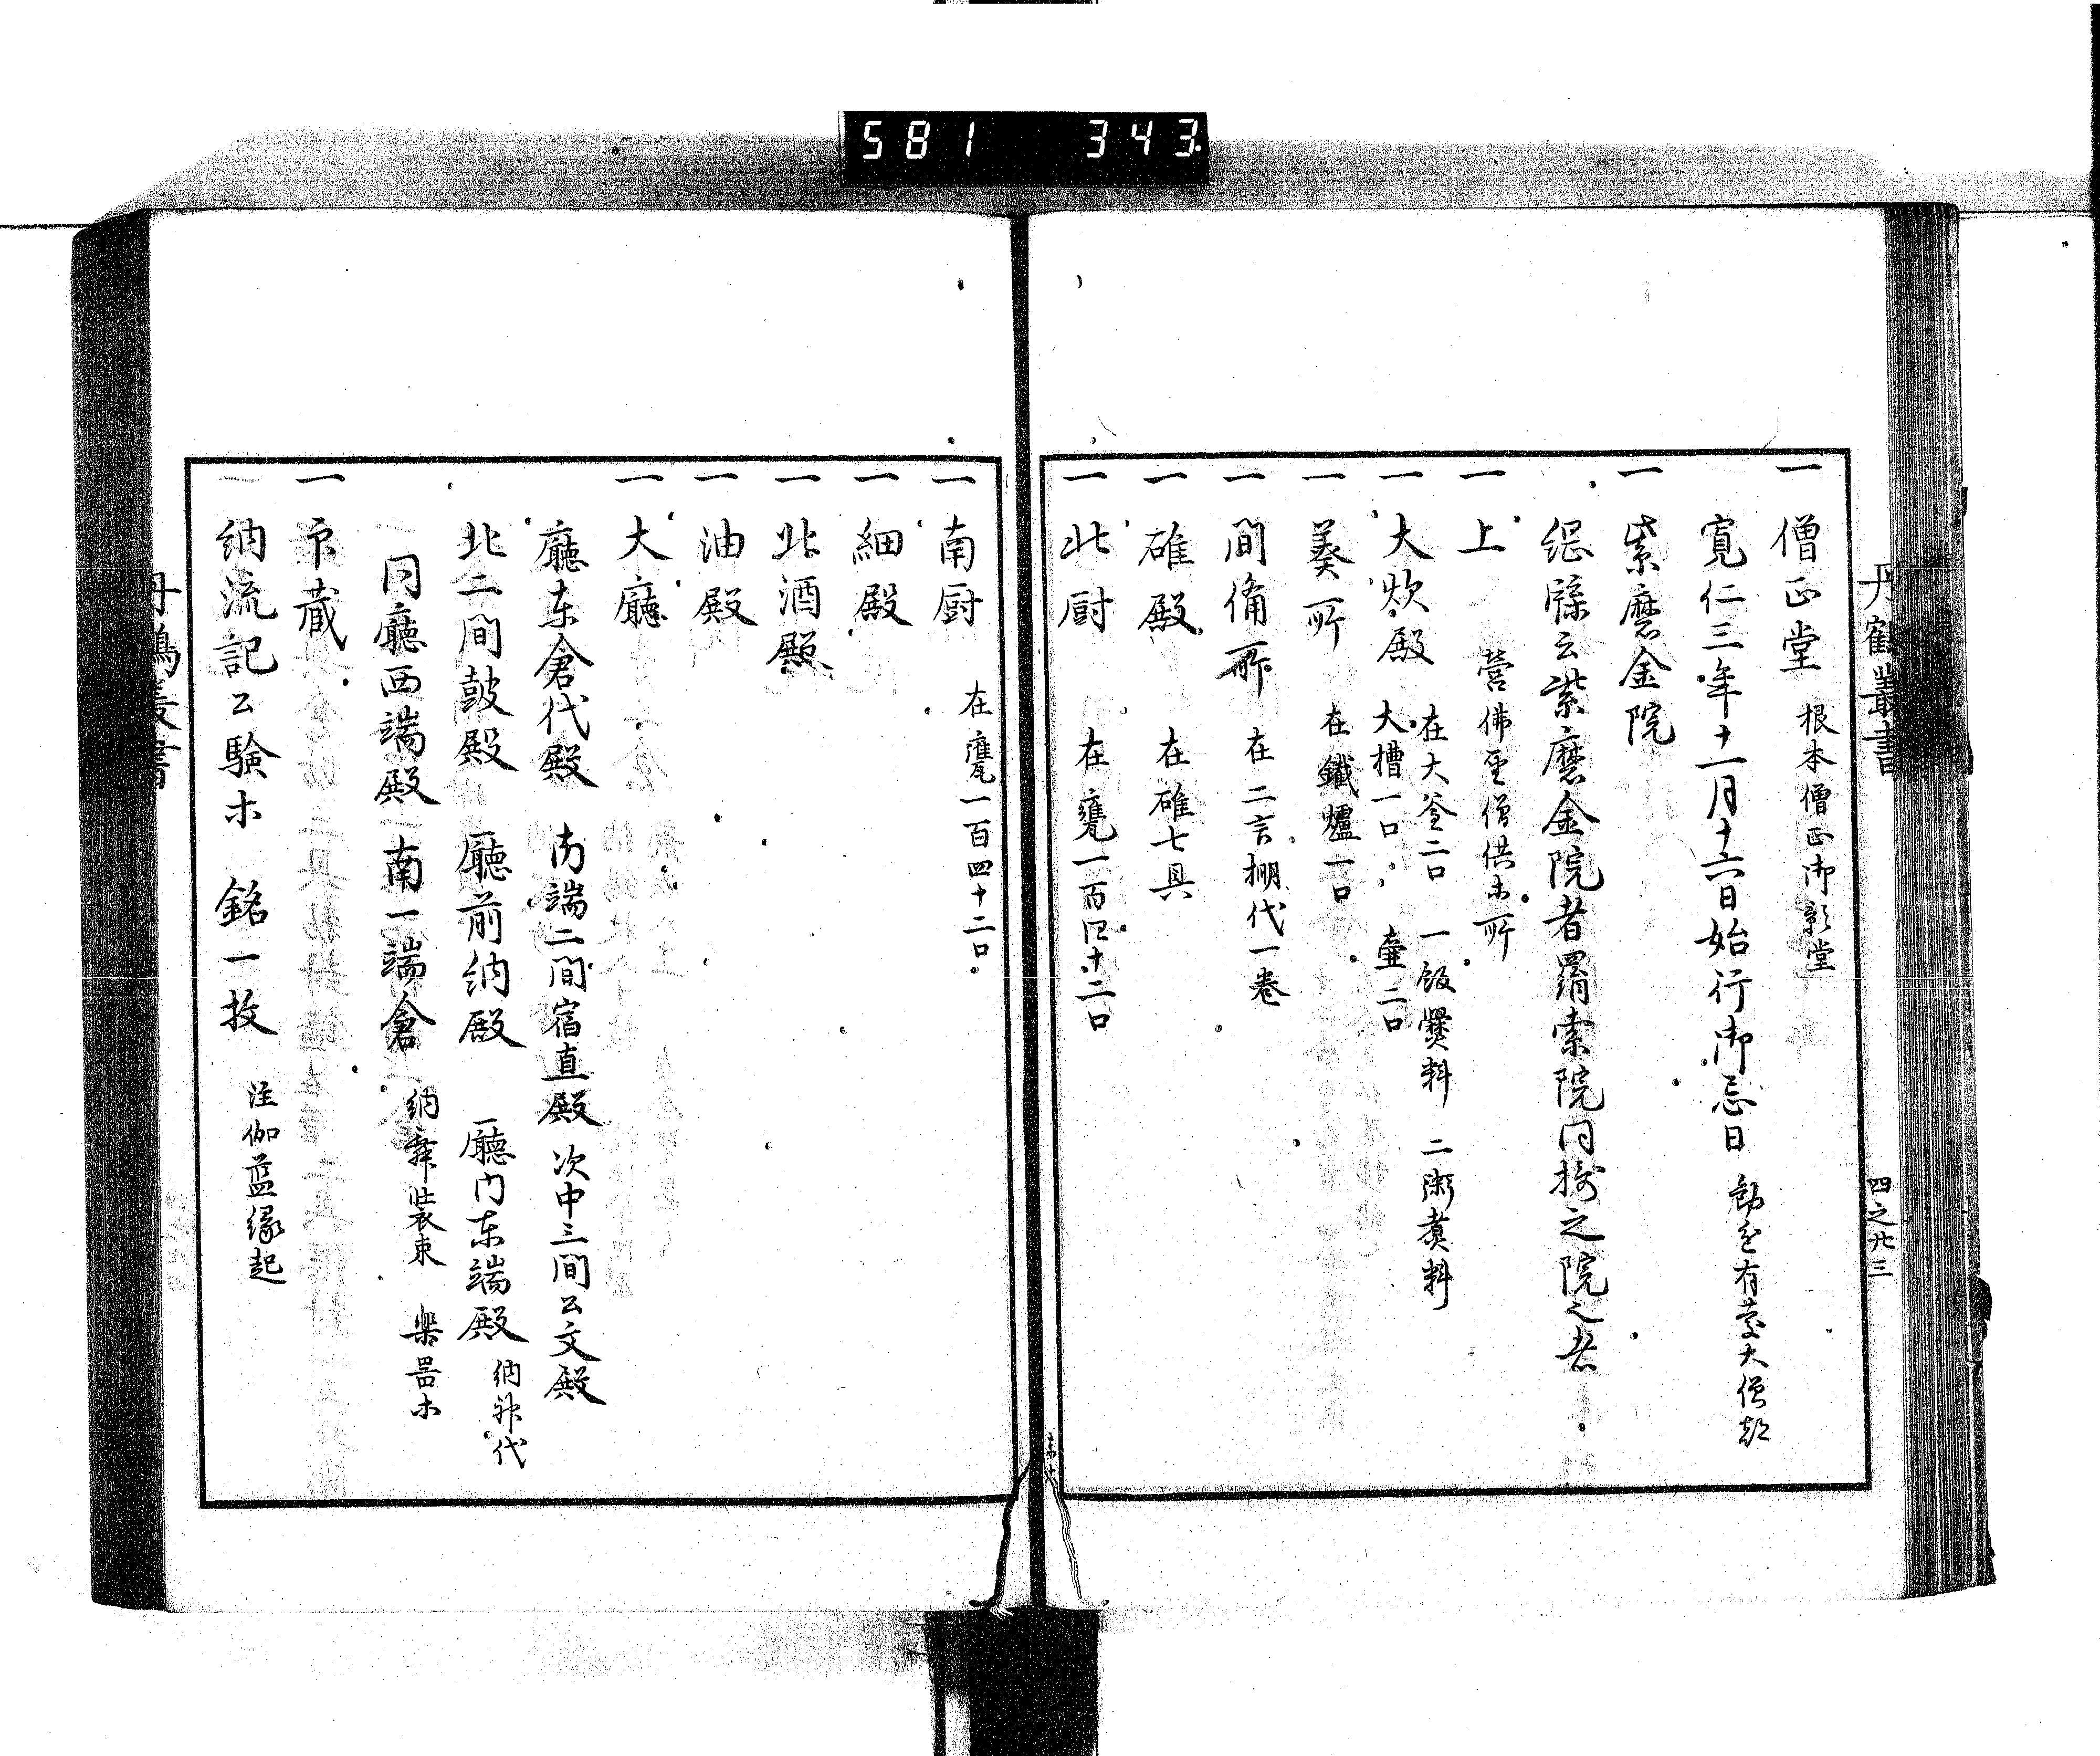 581 343
丹鶴叢書
四之廿三
一 僧正堂 根本僧正御影堂
寛仁三年十一月十六日始行御忌日 有慶大僧都
一 紫磨金院
紫磨金院者羂索院同 之院也者
一 上 營佛聖僧供 所
一 大炊殿 在大釜二口 一飯爨料 二粥煮料
大槽一口 壷二口
一 羹所 在鐵爐一口
一 間備所 在二言棚代一巻
一 碓殿 在碓七具
一 北厨 在甕一百四十二口
一 南厨 在甕一百四十二口
一 細殿
一 北酒殿
一 油殿
一 大廳
廳东倉代殿 内端二間宿直殿 次中三間公文殿
北二間鼓殿 廳前納殿 廳门东端殿 納 代
同廳西端殿 南一端倉 納 装束 樂器
一 印蔵
納流記公驗 銘一枚 注伽藍縁起
丹鶴叢書